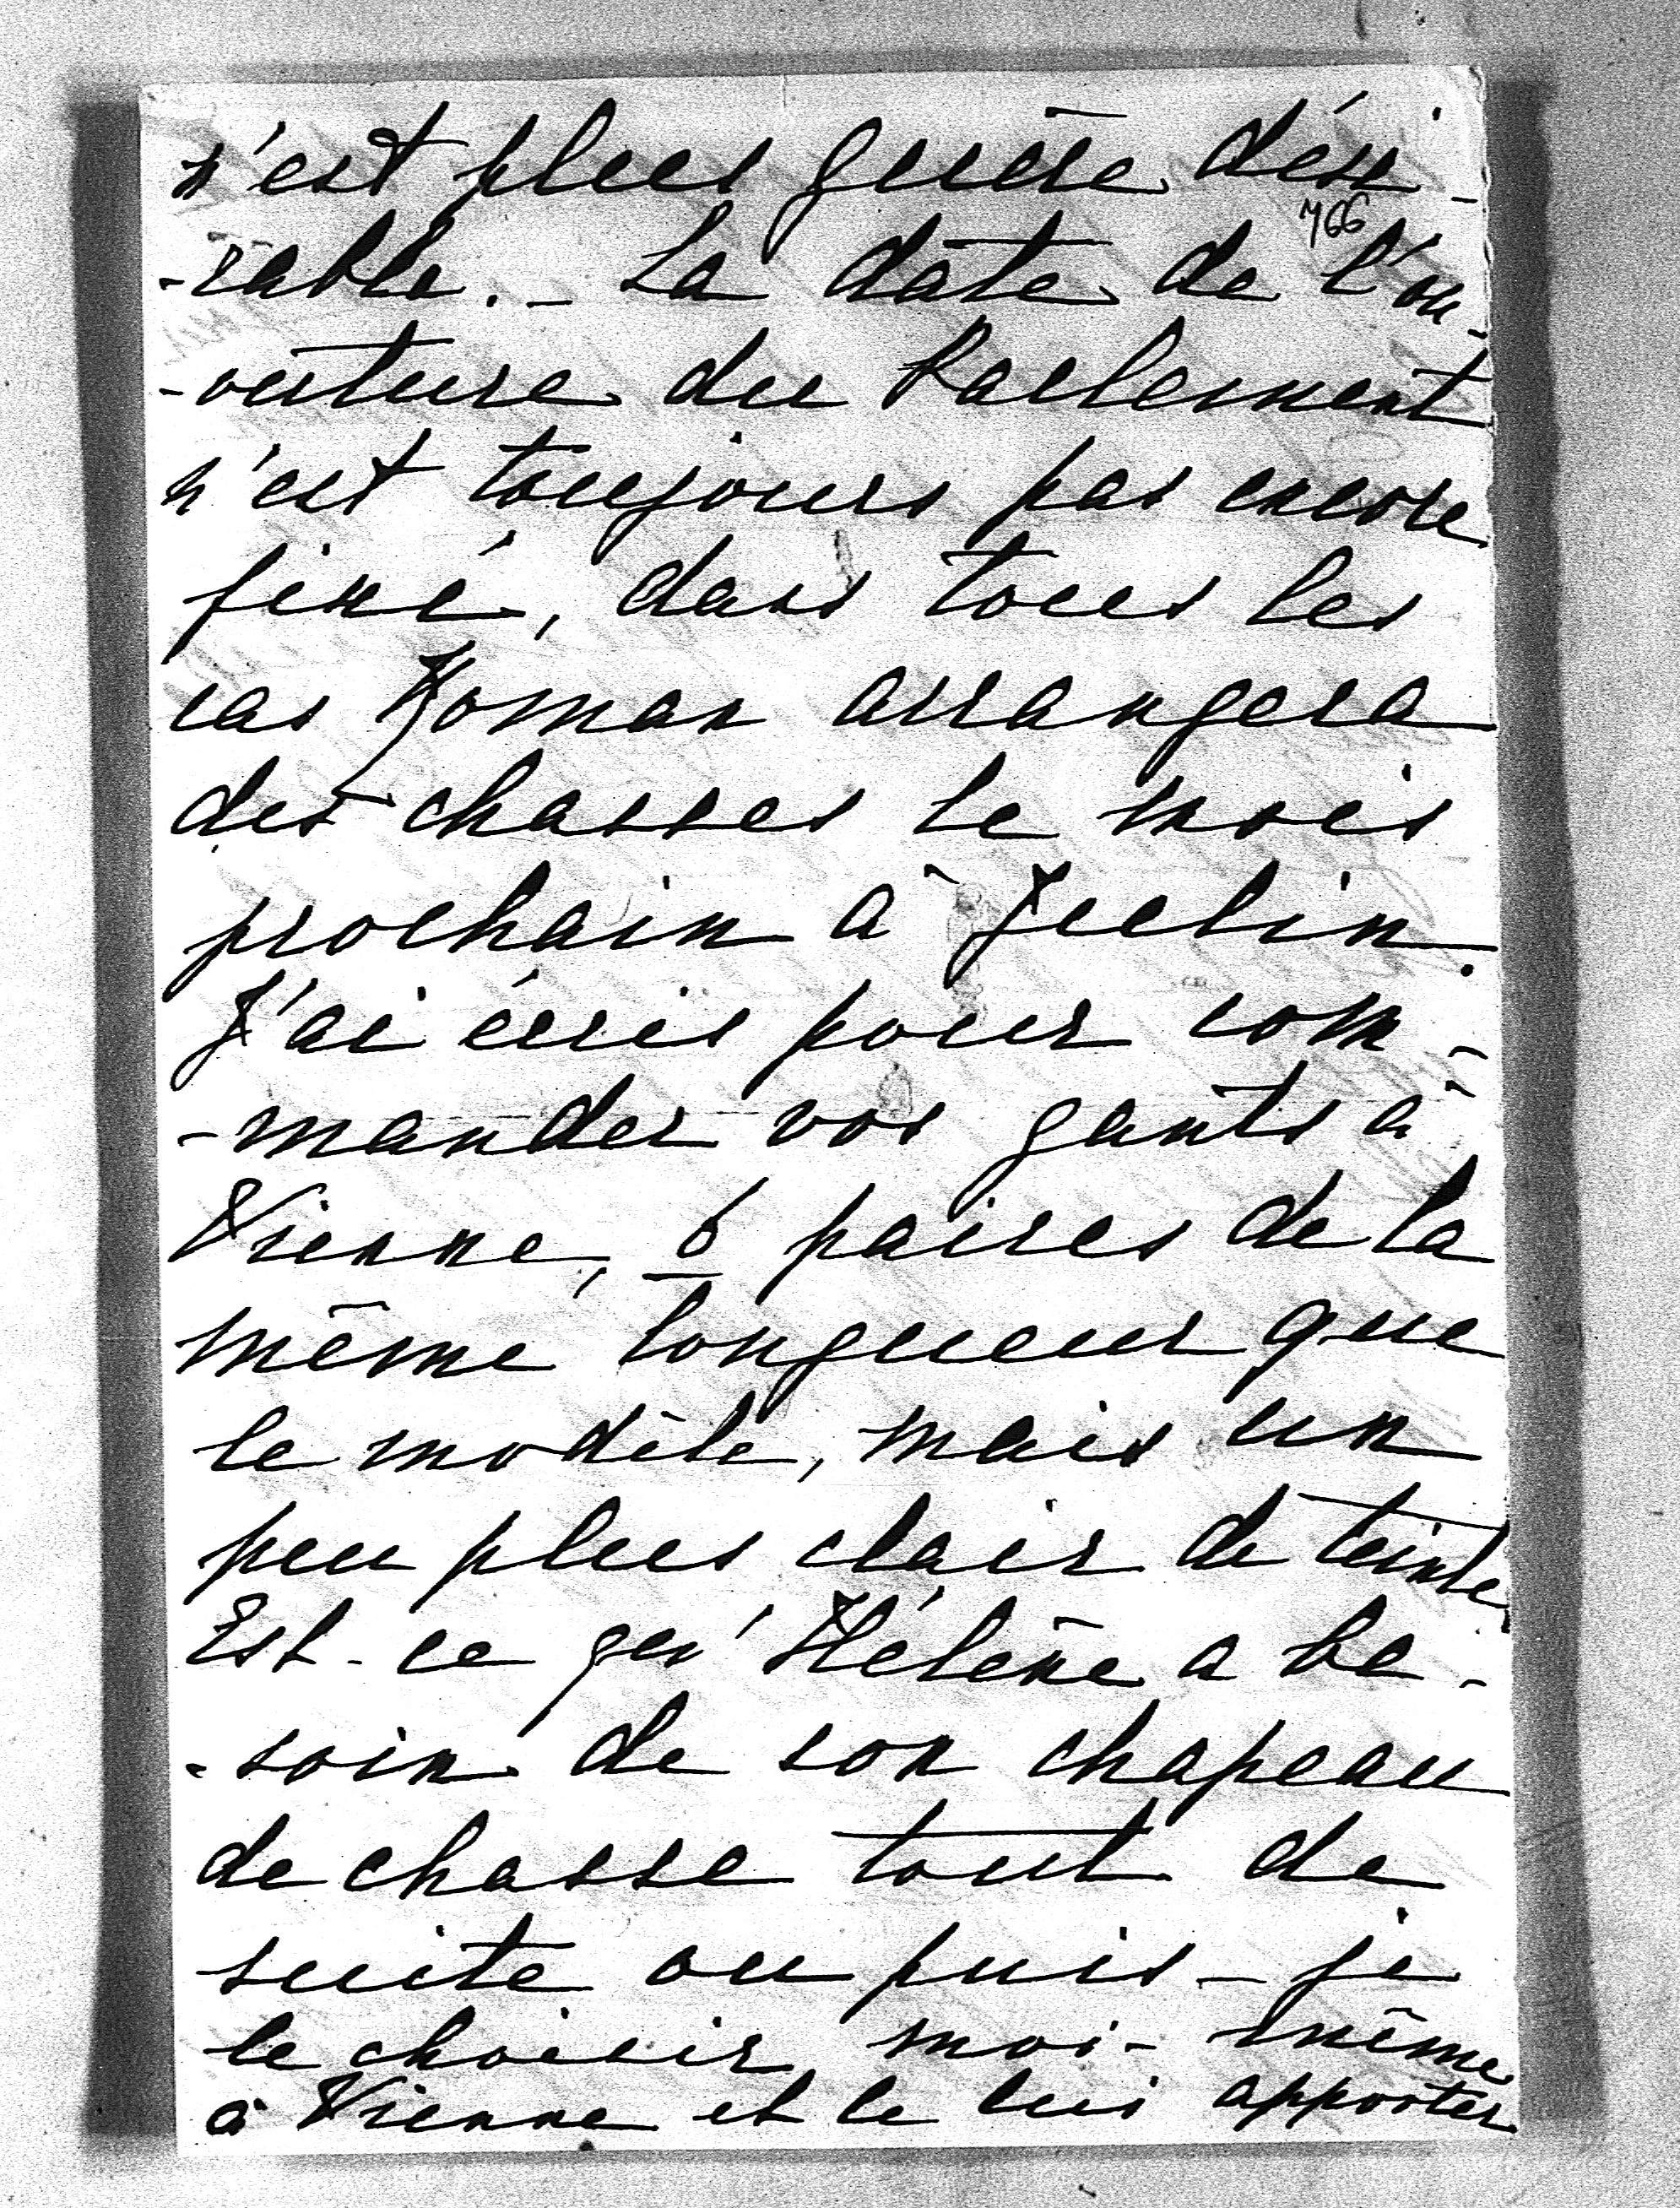 n'est plus guère dési-
766
-rable. - La date de l'ou-
-verture du Parlement
n'est toujours pas encore
fixé, dans tous les
cas Roman arrangera
des chasses le mois
prochain à Julin.
J'ai écris pour com-
-mander vos gants à
Vienne, 6 paires de la
même longueur que
le modèle, mais un
peu plus clair de teinte.
Est-ce qu'Hélène a be-
-soin de son chapeau
de chasse tout de
suite ou puis-je
le choisir moi-même
à Vienne et le lui apporter